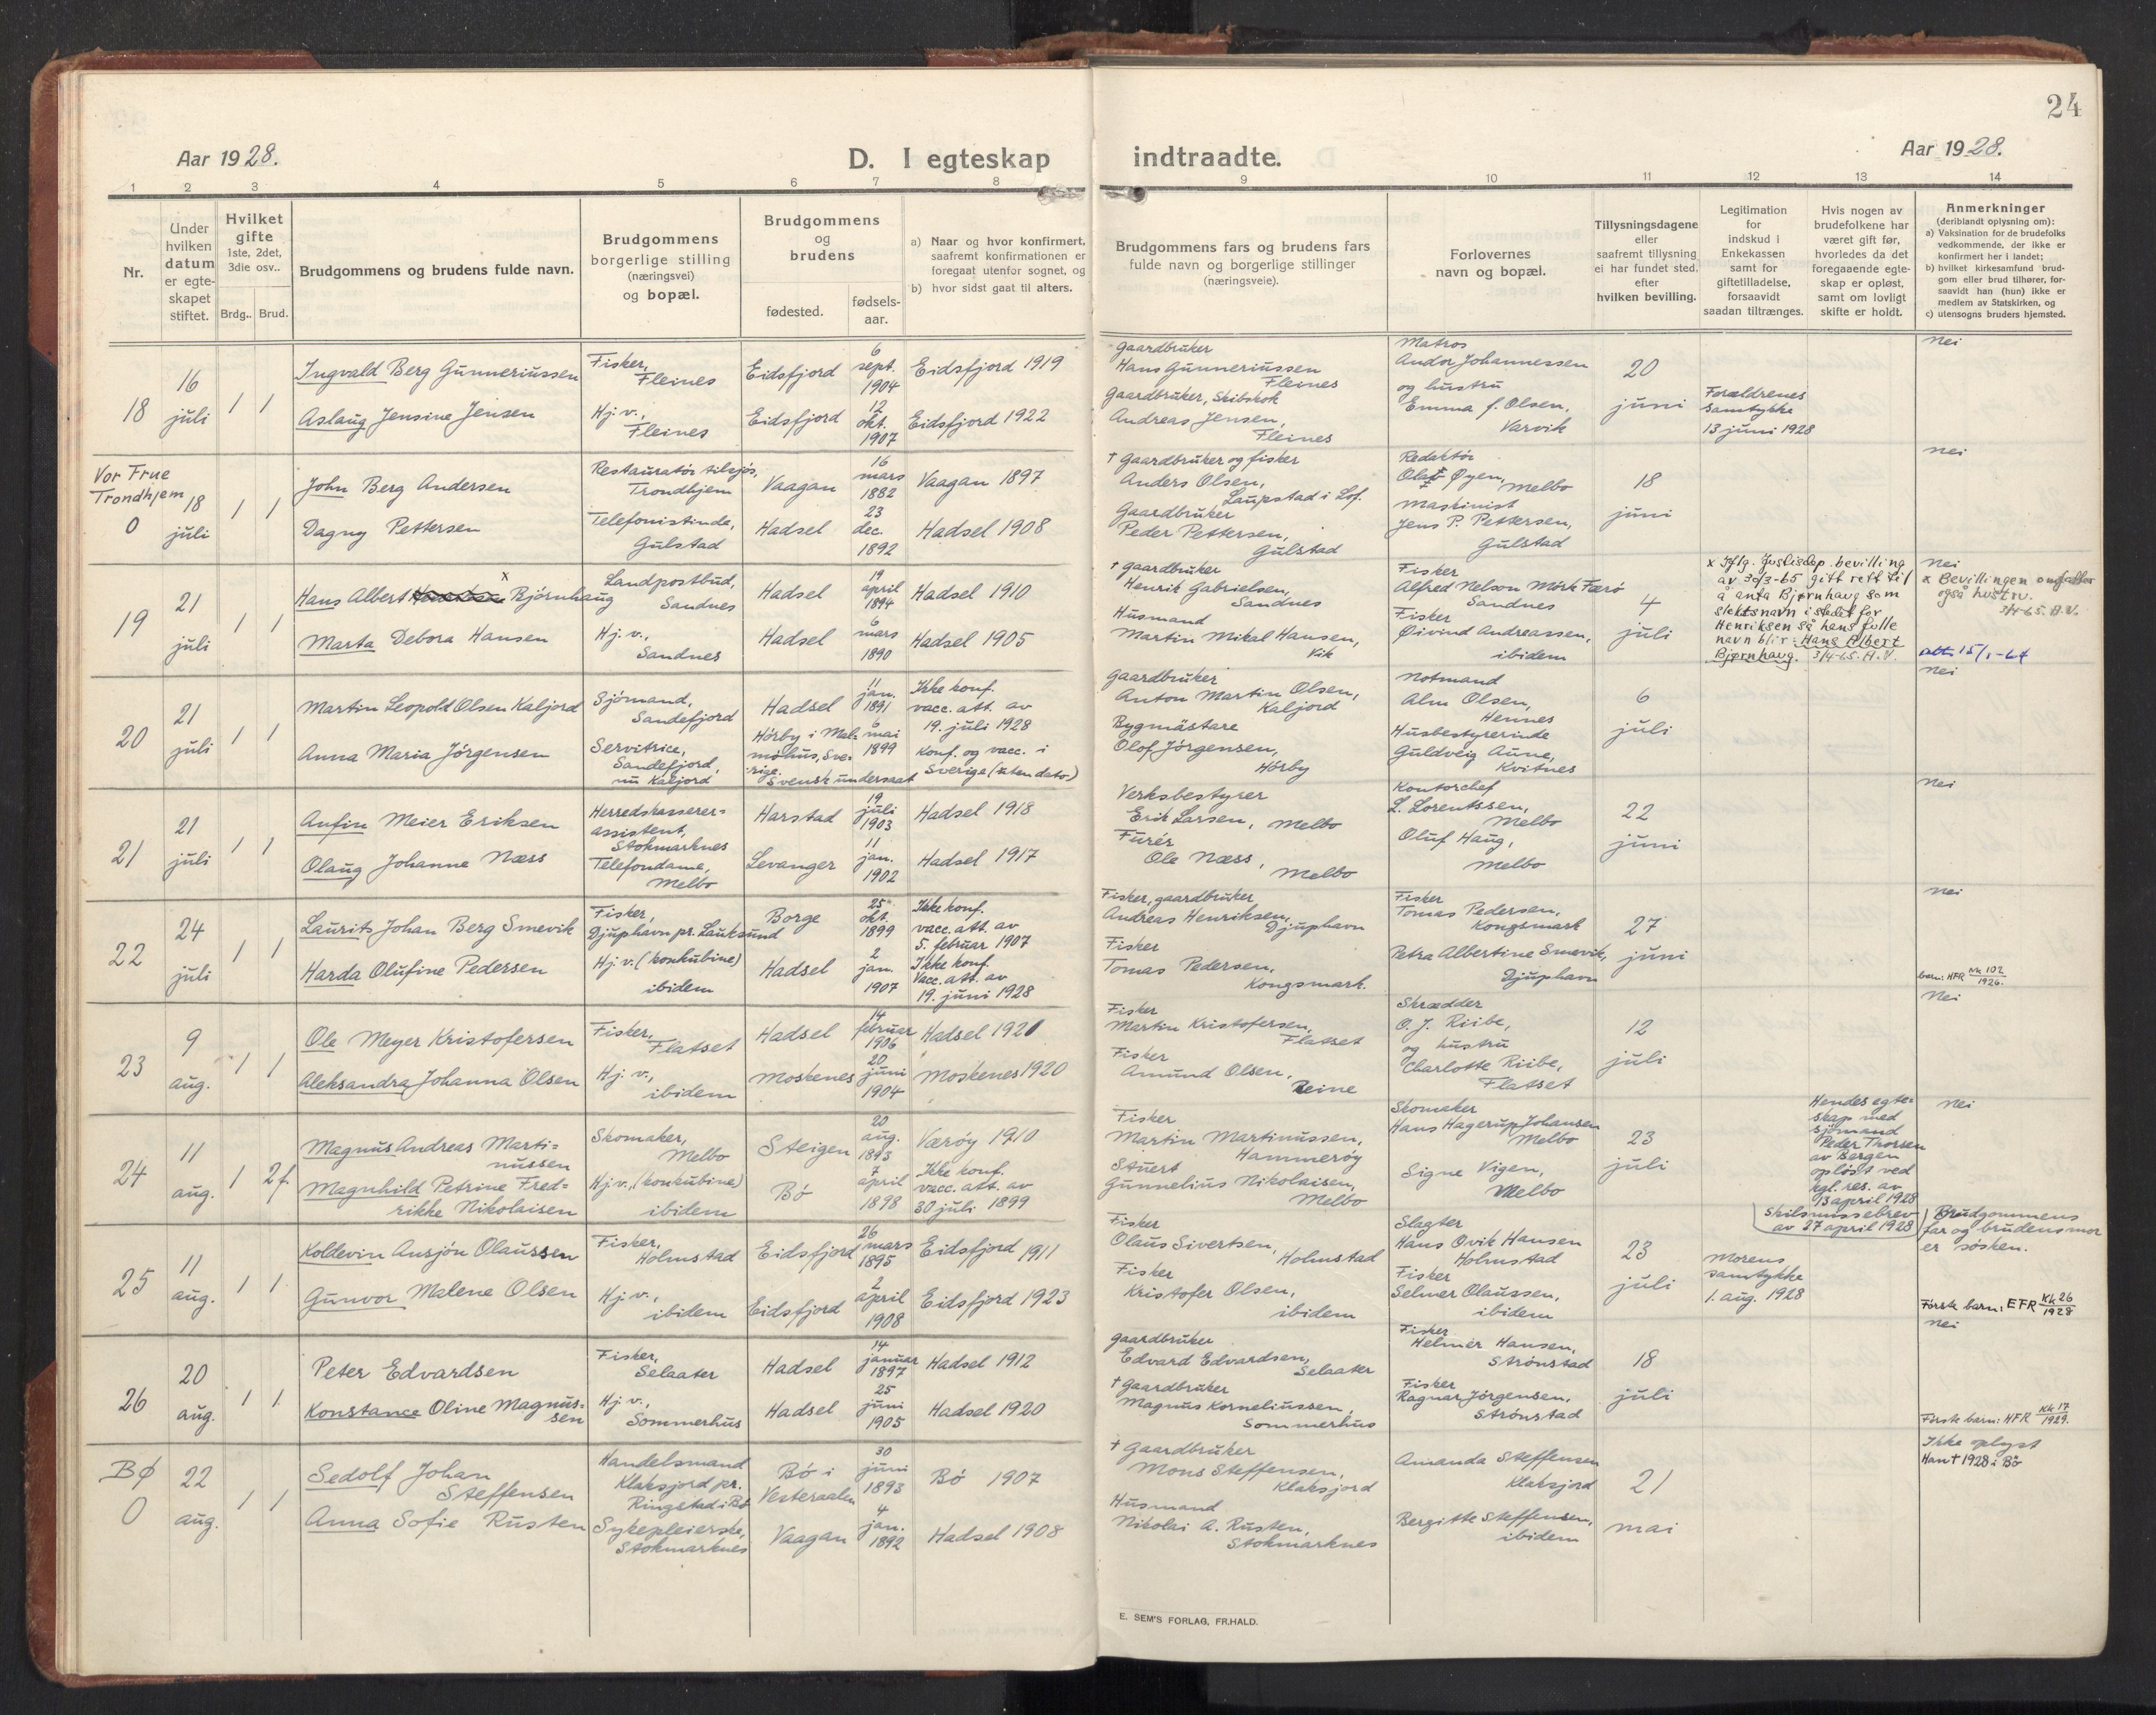 24
Aar 1928.
D. I egteskap
indtraadte.
Aar 1928.
1 2 3 4 5 6 7 8 9 10 11 12 13 14
Nr.
Under
hvilken
datum
er egte-
skapet
stiftet.
Hvilket
gifte
1ste, 2det,
3die osv..
Brdg.. Brud.
Brudgommens og brudens fulde navn.
Brudgommens
borgerlige stilling
(næringsvei)
og bopæl.
Brudgommens
og
brudens
fødested.
fødsels-
aar.
a) Naar og hvor konfirmert,
saafremt konfirmationen er
foregaat utenfor sognet, og
b) hvor sidst gaat til alters.
Brudgommens fars og brudens fars
fulde navn og borgerlige stillinger
(næringsveie).
Forlovernes
navn og bopæl.
Tillysningsdagene
eller
saafremt tillysning
ei har fundet sted,
efter
hvilken bevilling.
Legitimation
for
indskud i
Enkekassen
samt for
giftetilladelse,
forsaavidt
saadan tiltrænges.
Hvis nogen av
brudefolkene har
været gift før,
hvorledes da det
foregaaende egte-
skap er opløst,
samt om lovligt
skifte er holdt.
Anmerkninger
(deriblandt oplysning om):
a) Vaksination for de brudefolks
vedkommende, der ikke er
konfirmert her i landet;
b) hvilket kirkesamfund brud-
gom eller brud tilhører, for-
saavidt han (hun) ikke er
medlem av Statskirken, og
c) utensogns bruders hjemsted.
18
16
juli
1 1
Ingvald Berg Gunneriussen
Aslaug Jensine Jensen
Fisker,
Fleines
Hj. v.,
Fleines
Eidsfjord
Eidsfjord
6
sept.
1904
12
okt.
1907
Eidsfjord 1919
Eidsfjord 1922
Gaardbruker
Hans Gunneriussen
Fleines
Gaardbruker, Skibskok
Andreas Jensen,
Fleines
Matros
Andor Johannessen
og hustru
Emma f. Olsen,
Varvik
20
juni
Forældrenes
samtykke
13 juni 1928
Nei
Vor Frue
Trondhjem
0
18
juli
1 1
John Berg Andersen
Dagny Pettersen
Restauratør tilsjøs,
Trondhjem
Telefonistinde,
Gulstad
Vaagan
Hadsel
16
mars
1882
23
dec.
1892
Vaagan 1897
Hadsel 1908
† Gaardbruker og fisker
Anders Olsen,
Laupstad i Lof.
Gaardbruker
Peder Pettersen,
Gulstad
Redaktør
Olaf Øyen, Melbo
Maskinist
Jens P. Pettersen,
Gulstad
18
juni
Nei
19
21
juli
1 1
x
Hans Albert Bjørnhaug
Marta Debora Hansen
Landpostbud,
Sandnes
Hj. v.,
Sandnes
Hadsel
Hadsel
19
april
1894
6
mars
1890
Hadsel 1910
Hadsel 1905
† Gaardbruker
Henrik Gabrielsen,
Sandnes
Husmand
Martin Mikal Hansen,
Vik
Fisker
Alfred Nelson Mörk Færö
Sandnes
Fisker
Øivind Andreassen,
ibidem
4
juli
x Iflg. Justisdep. bevilling
av 30/3-65 gitt rett til
å anta Bjørnhaug som
slektsnavn istedet for
Henriksen så hans fulle
navn blir: Hans Albert
Bjørnhaug. 3/4-65. A.V.
Nei
x Bevillingen omfatter
også hustru.
3/4-65. A.V.
att. 15/1-64
20
21
juli
1 1
Martin Leopold Olsen Kaljord
Anna Maria Jörgensen
Sjömand,
Sandefjord
Servitrice,
Sandefjord,
nu Kaljord
Hadsel
Hörby i Mal-
möhus, Sve-
rige.
Svensk undersaat
11
jan.
1891
6
mai
1899
Ikke konf.
vacc. att. av
19. juli 1928
Konf. og vacc. i
Sverige (uten dato)
Gaardbruker
Anton Martin Olsen,
Kaljord
Bygmästare
Olof Jörgensen,
Hörby
Notmand
Alm Olsen,
Hennes
Husbestyrerinde
Guldveig Aune,
Kvitnes
6
juli
Nei
21
21
juli
1 1
Anfin Meier Eriksen
Olaug Johanne Næss
Herredskasserer-
assistent,
Stokmarknes
Telefondame,
Melbo
Harstad
Levanger
19
juli
1903
11
jan.
1902
Hadsel 1918
Hadsel 1917
Verksbestyrer
Erik Larsen, Melbo
Furér
Ole Næss,
Melbo
Kontorchef
L. Lorentssen,
Melbo
Oluf Haug,
Melbo
22
juni
Nei
22
24
juli
1 1
Laurits Johan Berg Smevik
Harda Olufine Pedersen
Fisker,
Djuphavn pr. Lauksund
Hj. v. (konkubine)
ibidem
Borge
Hadsel
25
okt.
1899
2
jan.
1907
Ikke konf.
vacc. att. av
5. februar 1907
Ikke konf.
Vacc. att. av
19. juni 1928
Fisker, gaardbruker
Andreas Henriksen,
Djuphavn
Fisker
Tomas Pedersen,
Kongsmark.
Fisker
Tomas Pedersen,
Kongsmark
Petra Albertine Smevik,
Djuphavn
27
juni
Nei
barn: HFR Nk 102
1926.
23
9
aug.
1 1
Ole Meyer Kristofersen
Aleksandra Johanna Olsen
Fisker,
Flatset
Hj. v.,
ibidem
Hadsel
Moskenes
14
februar
1906
20
juni
1904
Hadsel 1921
Moskenes 1920
Fisker
Martin Kristofersen,
Flatset
Fisker
Amund Olsen,
Reine
Skrædder
O. J. Riibe,
og hustru
Charlotte Riibe,
Flatset
12
juli
Nei
24
11
aug.
1 2 f.
Magnus Andreas Marti-
nussen
Magnhild Petrine Fred-
rikke Nikolaisen
Skomaker,
Melbo
Hj. v., (konkubine)
ibidem
Steigen
Bö
20
aug.
1893
7
april
1898
Værøy 1910
Ikke konf.
vacc. att. av
30 juli 1899
Fisker
Martin Martinussen,
Hammerøy
Stuert
Gunnelius Nikolaisen,
Melbo
Skomaker
Hans Hagerup Johansen
Melbo
Signe Vigen,
Melbo
23
juli
Hendes egte-
skap med
sjömand
Peder Thorsen
av Bergen
opløst ved
kgl. res. av
13 april 1928
Skilsmissebrev
av 27 april 1928
Nei
25
11
aug.
1 1
Koldevin Ansjön Olaussen
Gunvor Malene Olsen
Fisker,
Holmstad
Hj. v.,
ibidem
Eidsfjord
Eidsfjord
26
mars
1895
2
april
1908
Eidsfjord 1911
Eidsfjord 1923
Fisker
Olaus Sivertsen,
Holmstad
Fisker
Kristofer Olsen,
ibidem
Slagter
Hans Ovik Hansen
Holmstad
Fisker
Selmer Olaussen,
ibidem
23
juli
Morens
samtykke
1. aug. 1928
Brudgommens
far og brudens mor
er søsken.
Første barn: EFR Kk 26
1928
26
20
aug.
1 1
Peter Edvardsen
Konstance Oline Magnus-
sen
Fisker,
Selaater
Hj. v.,
Sommerhus
Hadsel
Hadsel
14
januar
1897
25
juni
1905
Hadsel 1912
Hadsel 1920
Gaardbruker
Edvard Edvardsen,
Selaater
† Gaardbruker
Magnus Korneliussen,
Sommerhus
Fisker
Helmer Hansen,
Strönstad
Fisker
Ragnar Jörgensen,
Strönstad
18
juli
Nei
Første barn: HFR Kk 17
1929.
BØ
0
22
aug.
1 1
Sedolf Johan
Steffensen
Anna Sofie Rusten
Handelsmand
Klaksjord pr.
Ringstad i Bö
Sykepleierske,
Stokmarknes
Bö i
Vesteraalen
Vaagan
30
juni
1893
4
jan.
1892
Bö 1907
Hadsel 1908
† Gaardbruker
Mons Steffensen,
Klaksjord
Husmand
Nikolai A. Rusten,
Stokmarknes
Amanda Steffensen
Klaksjord
Bergitte Steffensen,
ibidem
21
mai
Ikke oplyst
Han † 1928 i Bö
E. SEM'S FORLAG, FR.HALD.